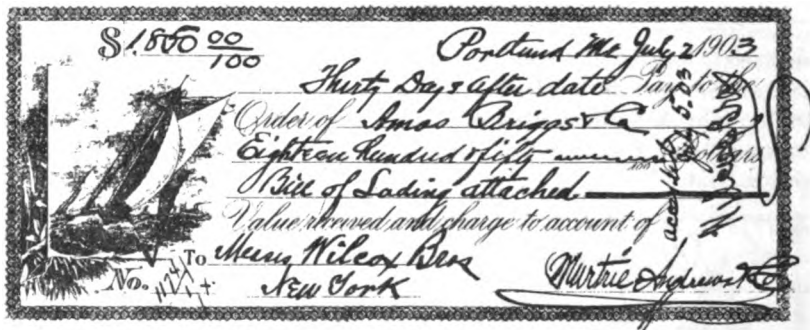 $ 1.850 00/100 Portland Me July 2 1903
Thirty Days after date Pay to the
Order of Amos Briggs & Co
Eighteen Hundred & fifty Dollars
Bill of Lading attached
Value received and charge to account of
To Messrs Wilcox Bros
New York
No.
Murtrie Andrews & Co
accepted July 5. 03